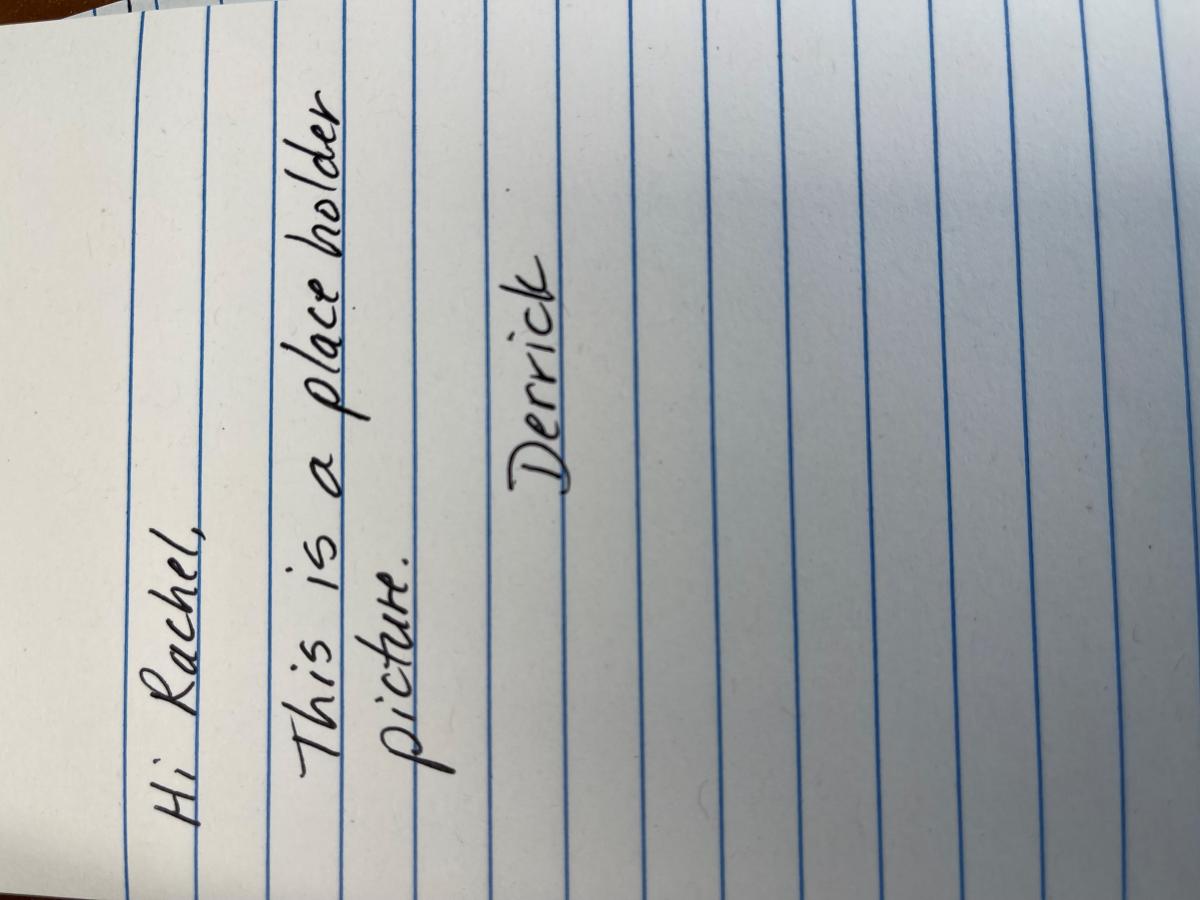 Hi Rachel,
This is a place holder
picture.
Derrick